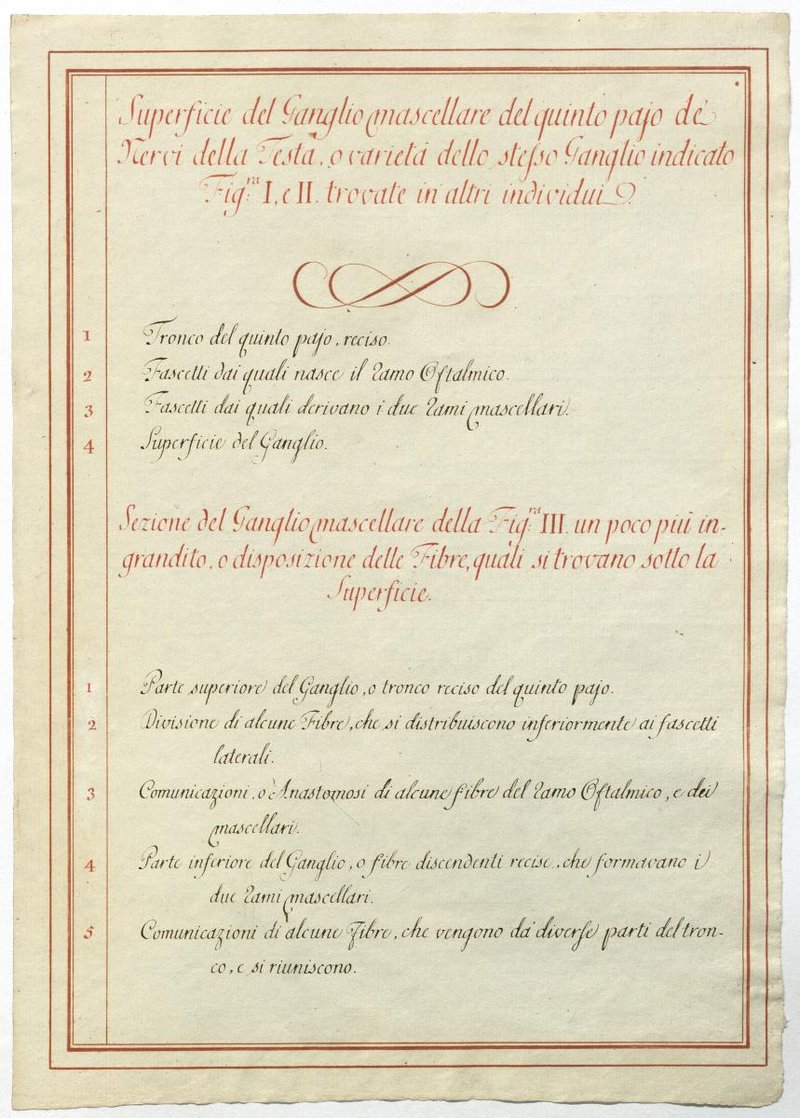 Superficie del Ganglio mascellare del quinto pajo de'
Nervi della Testa, o varietà dello stesso Ganglio indicato
Fig:ra I, e II. trovate in altri individui.
1 Tronco del quinto pajo, reciso.
2 Fascetti dai quali nasce il Ramo Oftalmico.
3 Fascetti dai quali derivano i due Rami mascellari.
4 Superficie del Ganglio.
Sezione del Ganglio mascellare della Fig:ra III. un poco più in-
grandito, o disposizione delle Fibre, quali si trovano sotto la
Superficie.
1 Parte superiore del Ganglio, o tronco reciso del quinto pajo.
2 Divisione di alcune Fibre, che si distribuiscono inferiormente ai fascetti
laterali.
3 Comunicazioni, o Anastomosi di alcune fibre del Ramo Oftalmico, e dei
mascellari.
4 Parte inferiore del Ganglio, o fibre discendenti recise, che formavano i
due Rami mascellari.
5 Comunicazioni di alcune Fibre, che vengono da diverse parti del tron-
co, e si riuniscono.